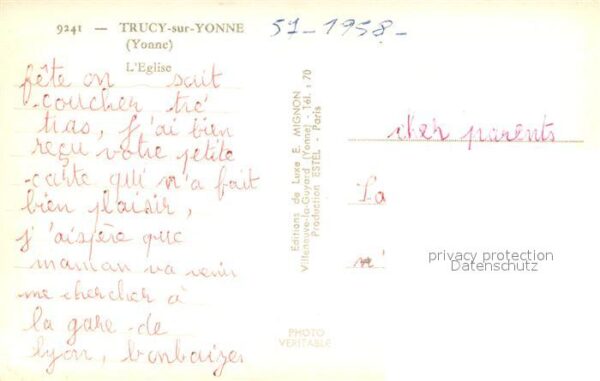 9241 — TRUCY-sur-YONNE
(Yonne)
L'Eglise
51-1958-
fête on sait
coucher tré
tras, j'ai bien
reçu votre petite
carte qui m'a fait
bien plaisir,
j'aispère que
maman va venir
me chercher à
la gare de
lyon, bonbaizes
Editions de Luxe E. MIGNON
Villeneuve-la-Guyard (Yonne) - Tél. : 70
Production ESTEL - Paris
PHOTO
VERITABLE
cher parents
La
privacy protection
Datenschutz